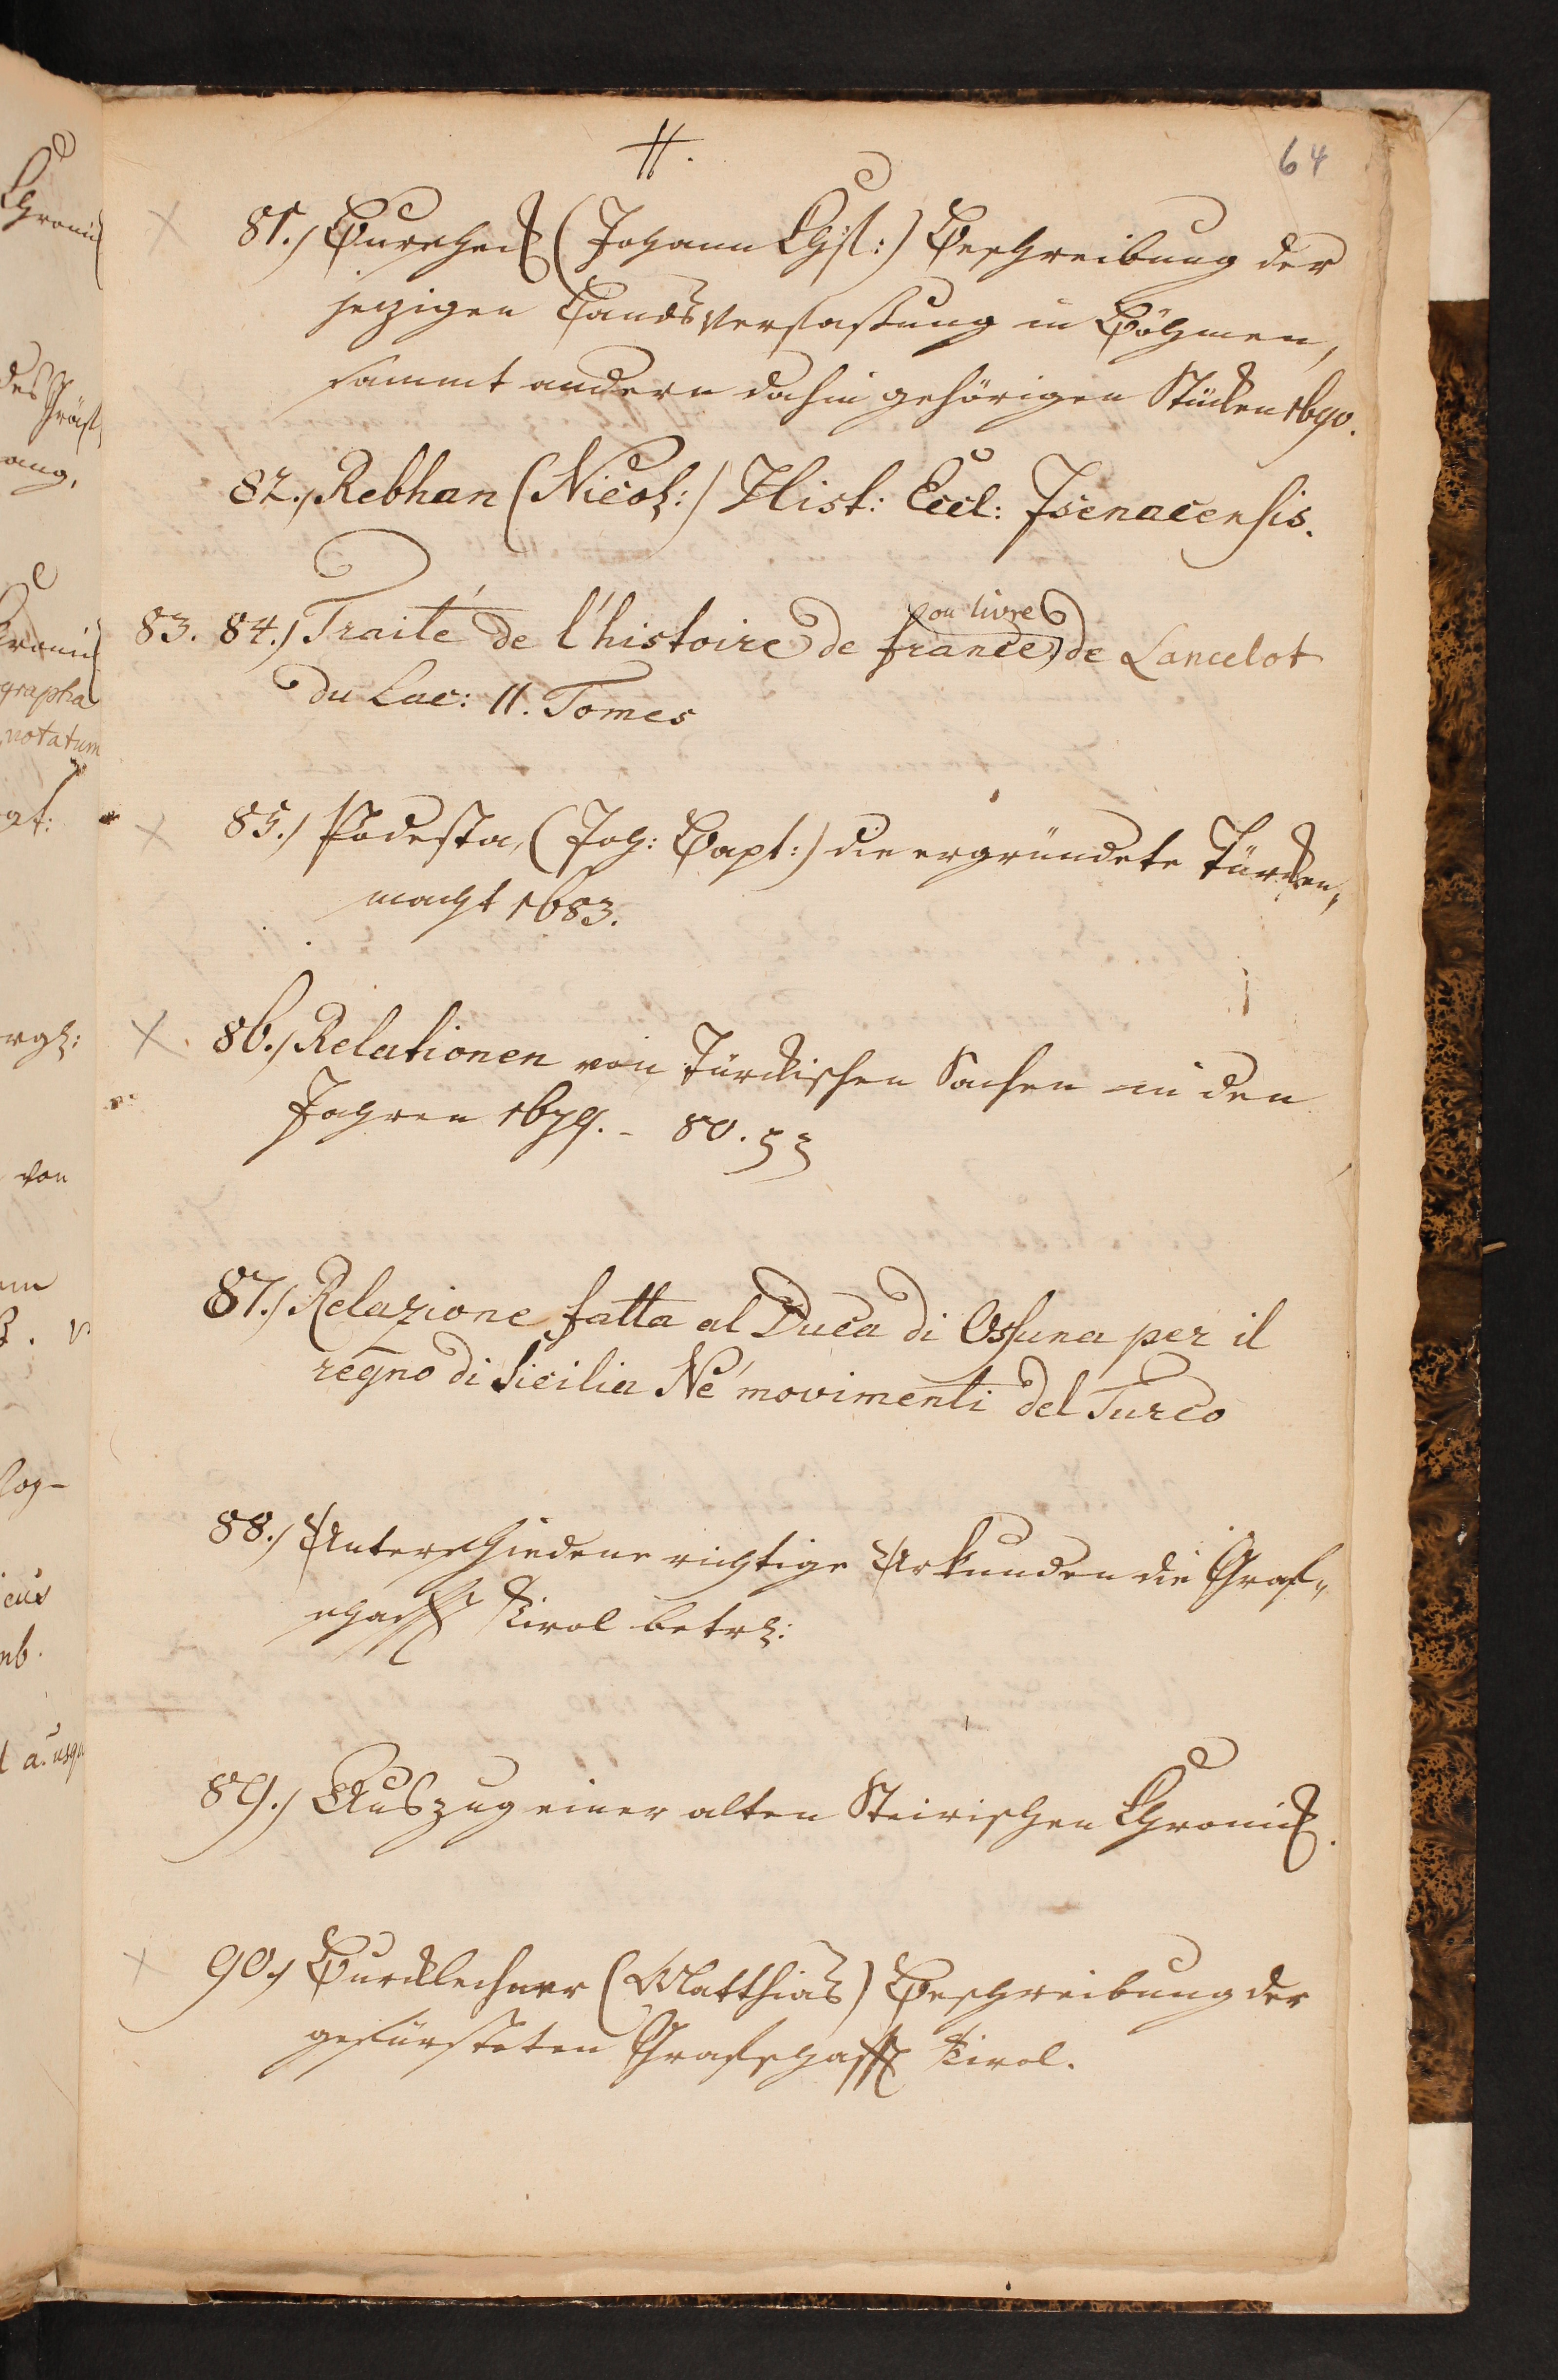 H.
64
81.) (Johann Chst:) Beschreibung der
jezigen Landsverfassung in Böhmen,
sammt andern dahin gehörigen Stücken 1690.
82.) Rebhan (Nicol:) Hist: Eccl: Isenacensis.
ou livre
83. 84.) Traité de l'histoire de france, de Lancelot
du Lac: II. Tomes
85.) Podesta, (Joh: Bapt:) die ergründete Türken,,
macht 1683.
86.) Relationen von Türckischen Sachen in den
Jahren 1679. - 80.
87.) Relazione fatta al Duca di Ossuna per il
regno di Sicilia Né movimenti del Turco
88.) Unterschiedene richtige Urkunden die Graf,,
schafft Tirol betrl:
89.) Auszug einer alten Steirischen Chronick.
90.) Burcklechner (Matthias) Beschreibung der
gefürsteten Grafschafft Tirol.